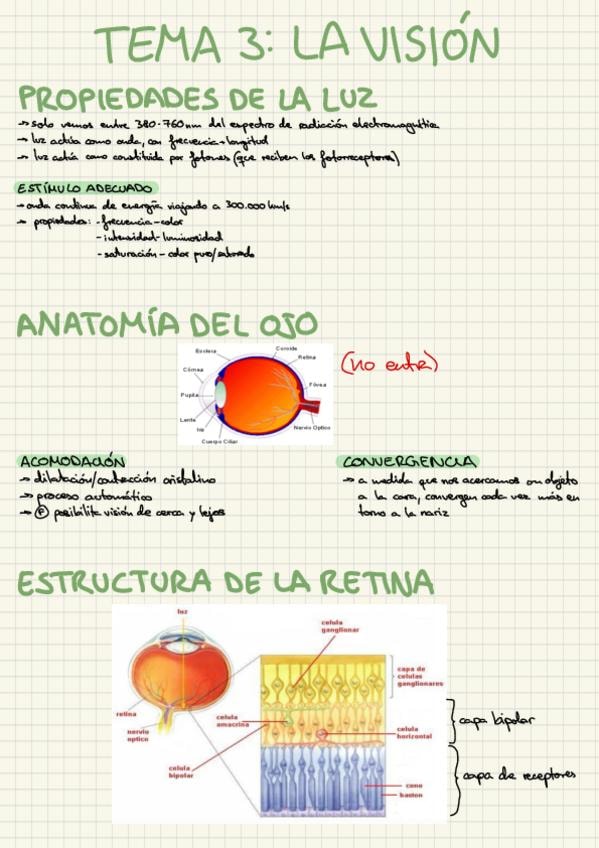 TEMA 3: LA VISIÓN
PROPIEDADES DE LA LUZ
→ solo vemos entre 380-760nm del espectro de radiación electromagnética
→ luz actúa como onda, con frecuencia + longitud
→ luz actúa como constituida por fotones (que reciben los fotorreceptores)
ESTÍMULO ADECUADO
→ onda continua de energía viajando a 300.000 km/s
→ propiedades: - frecuencia - color
- intensidad - luminosidad
- saturación - color puro/saturado
ANATOMÍA DEL OJO
Esclera
Coroide
Retina
Córnea
Fóvea
Pupila
Lente
Iris
Nervio Optico
Cuerpo Ciliar
(no entra)
ACOMODACIÓN
→ dilatación/contracción cristalino
→ proceso automático
→ F posibilita visión de cerca y lejos
CONVERGENCIA
→ a medida que nos acercamos un objeto
a la cara, convergen cada vez más en
torno a la nariz
ESTRUCTURA DE LA RETINA
luz
celula
ganglionar
capa de
celulas
ganglionares
retina
nervio
optico
celula
amacrina
celula
horizontal
celula
bipolar
cono
baston
capa bipolar
capa de receptores